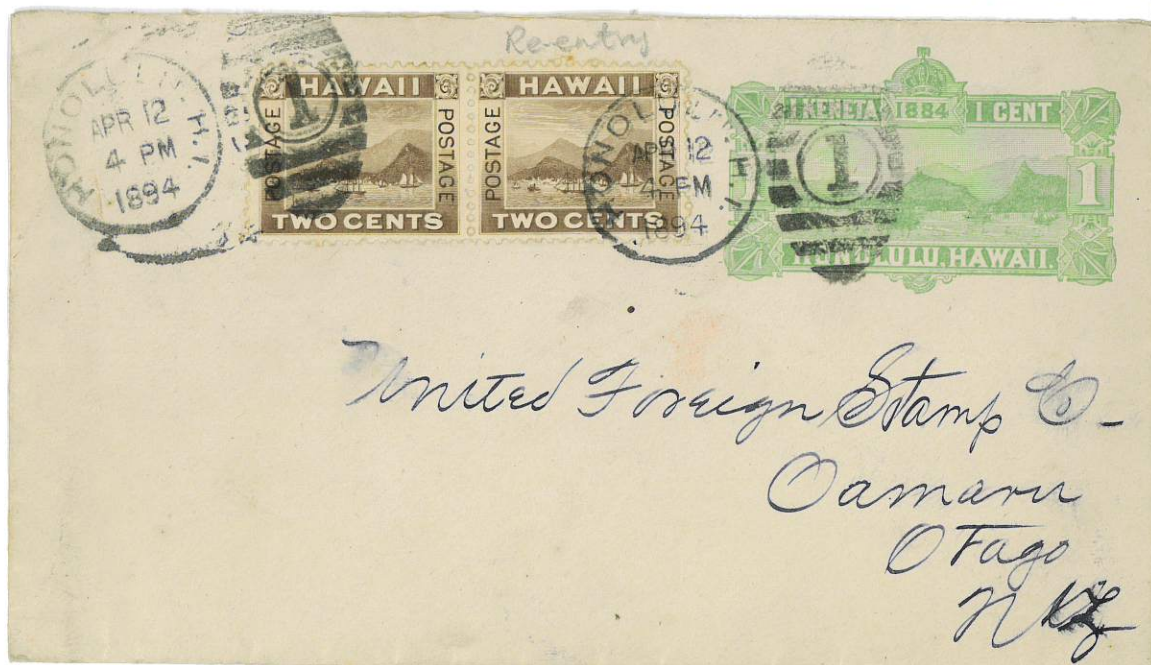 Re-entry
HONOLULU H.I.
APR 12
4 PM
1894
1
HAWAII
POSTAGE
POSTAGE
TWO CENTS
HAWAII
POSTAGE
POSTAGE
TWO CENTS
HONOLULU H.I.
APR 12
4 PM
1894
1
1 KENETA 1884 1 CENT
1
HONOLULU, HAWAII.
United Foreign Stamp Co-
Oamaru
Otago
NZ